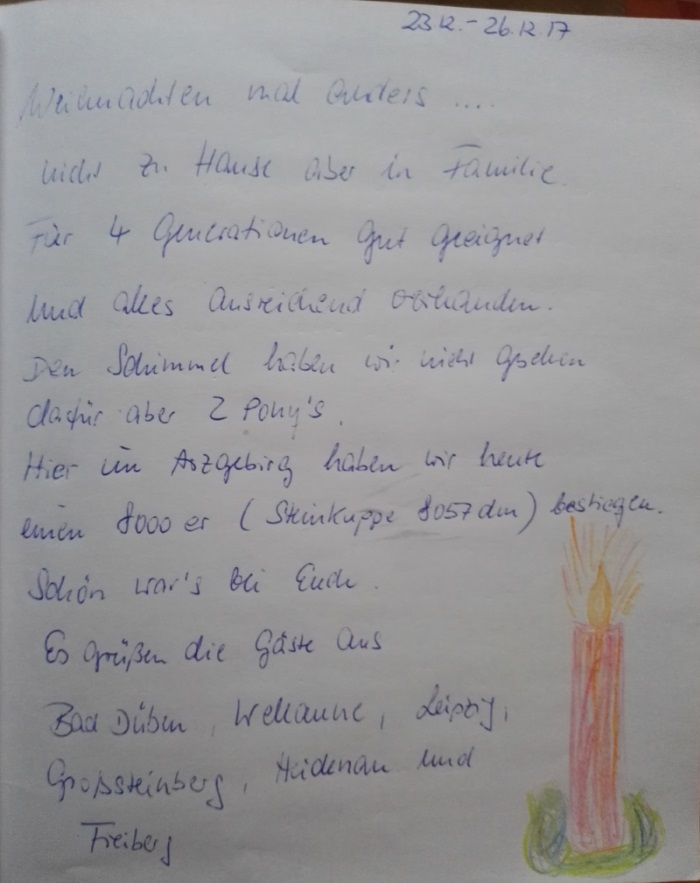 23.12.-26.12.17
Weihnachten mal anders ....
nicht zu Hause aber in Familie.
Für 4 Generationen gut geeignet
und alles ausreichend vorhanden.
Den Schimmel haben wir nicht gesehen
dafür aber 2 Pony's.
Hier im Arzgebirg haben wir heute
einen 8000er (Steinkuppe 8057dm) bestiegen.
Schön war's bei Euch.
Es grüßen die Gäste aus
Bad Düben, Wellaune, Leipzig,
Großsteinberg, Heidenau und
Freiberg